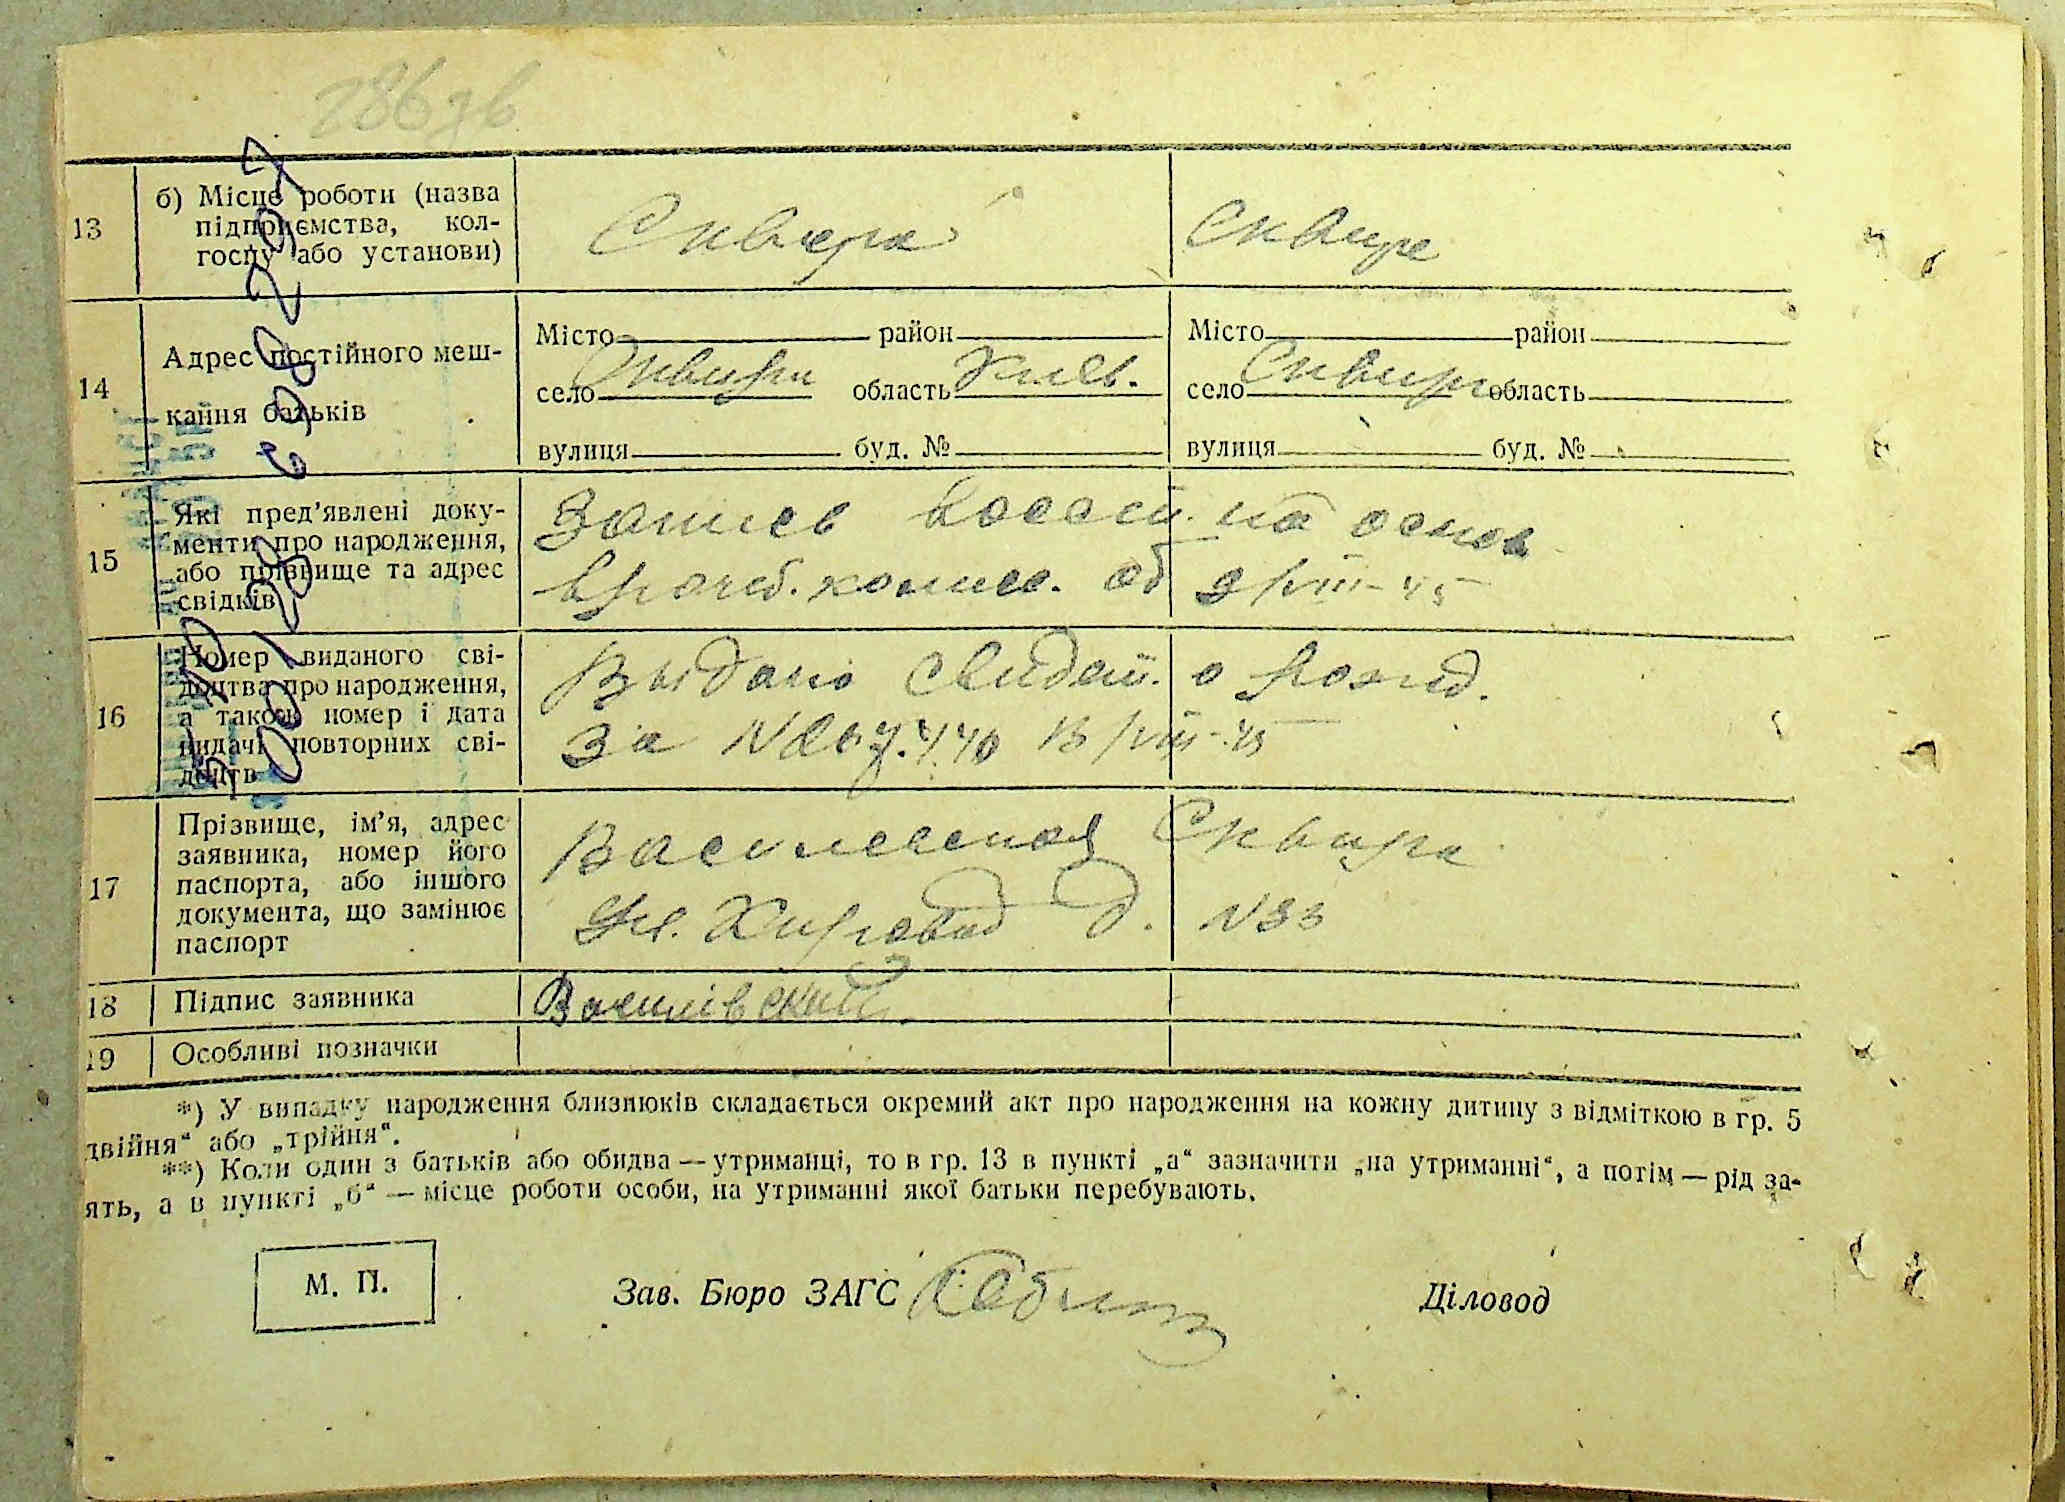 13 б) Місце роботи (назва
підприємства, кол-
госпу або установи)
Сквира Сквире
14 Адрес постійного меш-
кання батьків
Місто район Місто район
село Сквира область Киев. село Сквира область
вулиця буд. № вулиця буд. №
15 Які пред'явлені доку-
менти про народження,
або прізвище та адрес
свідків
Запись восст. на основ
врачеб. комисс. от 9/VIII-45
16 Номер виданого сві-
доцтва про народження,
а також номер і дата
видачі повторних сві-
доцтв
Выдано свидет. о рожд.
за N 13/VIII-45
17 Прізвище, ім'я, адрес
заявника, номер його
паспорта, або іншого
документа, що замінює
паспорт
Сквира
Ул. д. N33
18 Підпис заявника Василівский
19 Особливі позначки
*) У випадку народження близнюків складається окремий акт про народження на кожну дитину з відміткою в гр. 5
двійня“ або „трійня“.
**) Коли один з батьків або обидва — утриманці, то в гр. 13 в пункті „а“ зазначити „на утриманні“, а потім — рід за-
ять, а в пункті „б“ — місце роботи особи, на утриманні якої батьки перебувають.
М. П. Зав. Бюро ЗАГС Діловод